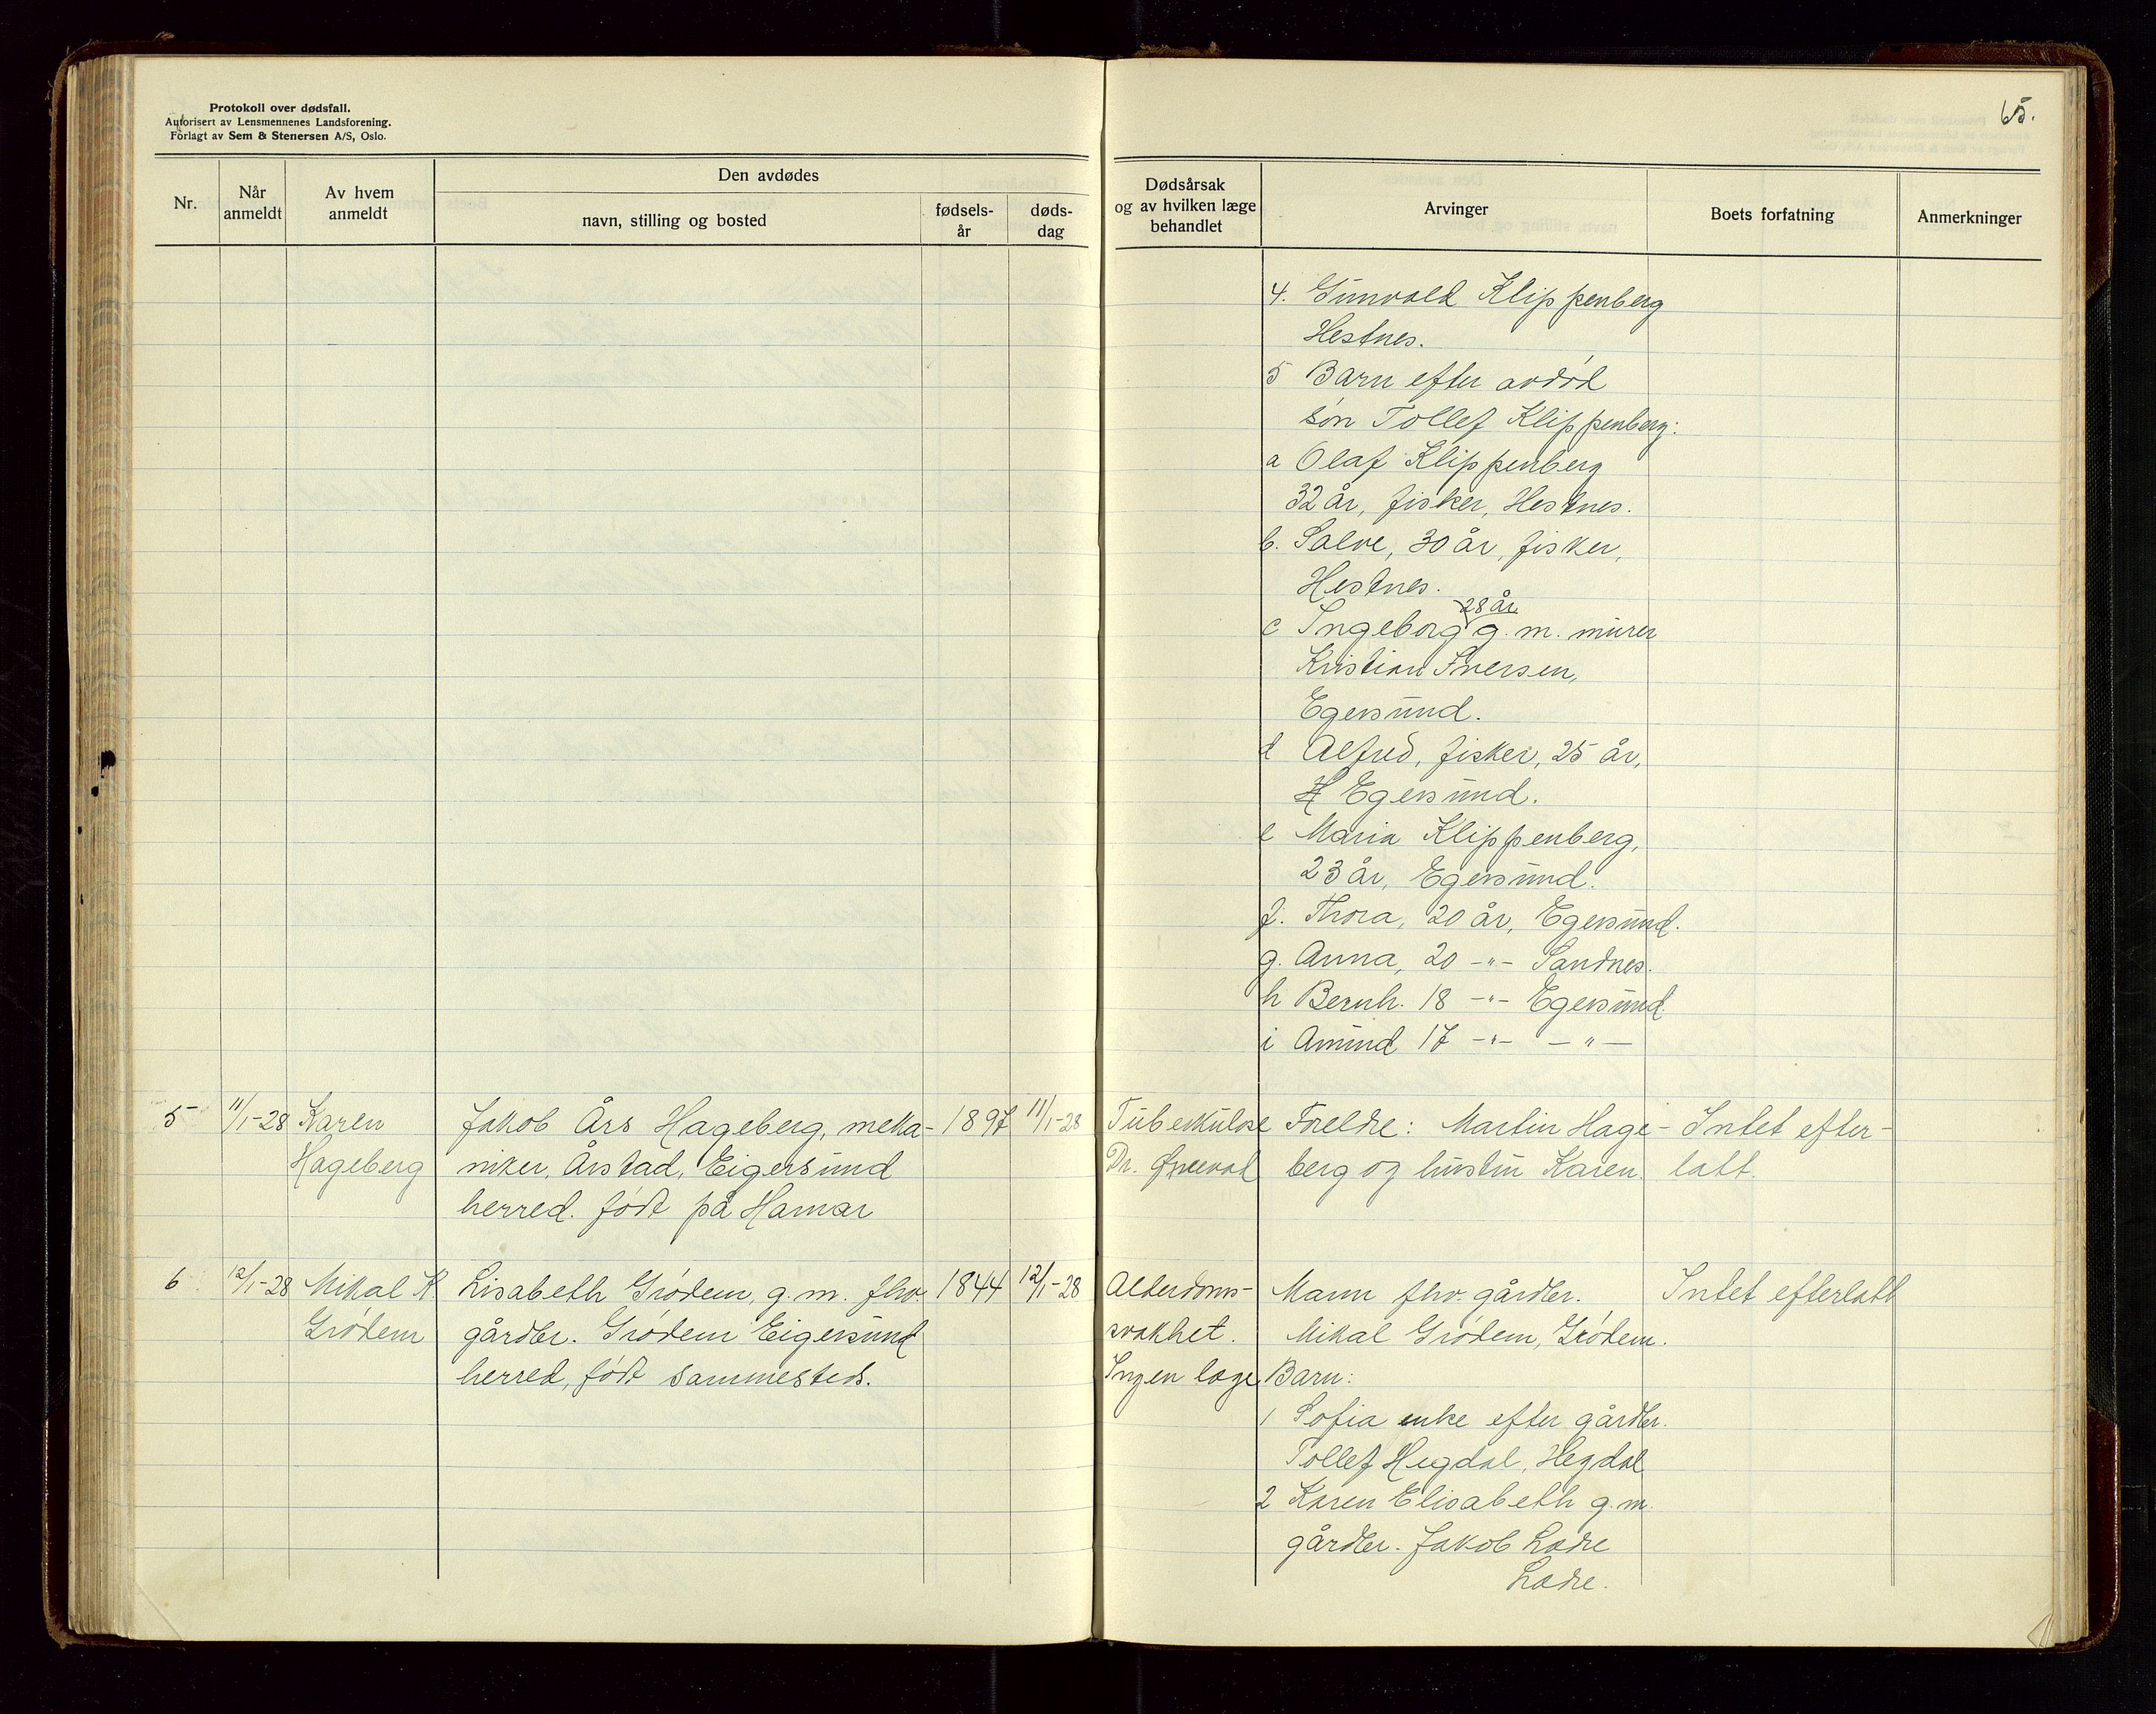 Protokoll over dødsfall.
Autorisert av Lensmennenes Landsforening.
Forlagt av Sem & Stenersen A/S, Oslo.
65.
Nr.
Når anmeldt
Av hvem anmeldt
Den avdødes
navn, stilling og bosted
fødsels-år
døds-dag
Dødsårsak og av hvilken læge behandlet
Arvinger
Boets forfatning
Anmerkninger
4. Gunvald Klippenberg
Hestnes.
5 Barn efter avdød
søn Tollef Klippenberg:
a Olaf Klippenberg
32 år, fisker, Hestnes.
b. Salve, 30 år, fisker,
Hestnes.
28 år
c Ingeborg g. m. murer
Kristian Iversen,
Egersund.
d Alfred, fisker, 25 år,
H Egersund.
e Maria Klippenberg,
23 år, Egersund.
f. Thora, 20 år, Egersund.
g. Anna, 20 -"- Sandnes.
h Bernh. 18 -"- Egersund
i Amund 17 -"- -"-
5 11/1-28 Karen Jakob Års Hageberg, meka- 1897 11/1-28 Tuberkulose Foreldre: Martin Hage- Intet efter-
Hageberg niker, Årstad, Eigersund Dr. berg og hustru Karen. latt.
herred. født på Hamar
6 12/1-28 Mikal K Lisabeth Grødem, g. m. fhv. 1844 12/1-28 Alderdoms- Mann fhv. gårdbr. Intet efterlatt
Grødem gårdbr. Grødem Eigersund svakhet. Mikal Grødem, Grødem.
herred, født sammesteds. Ingen læge Barn:
1 Sofia enke efter gårdbr.
Tollef Hegdal, Hegdal
2 Karen Elisabeth g. m.
gårdbr. Jakob Ladre
Ladre.